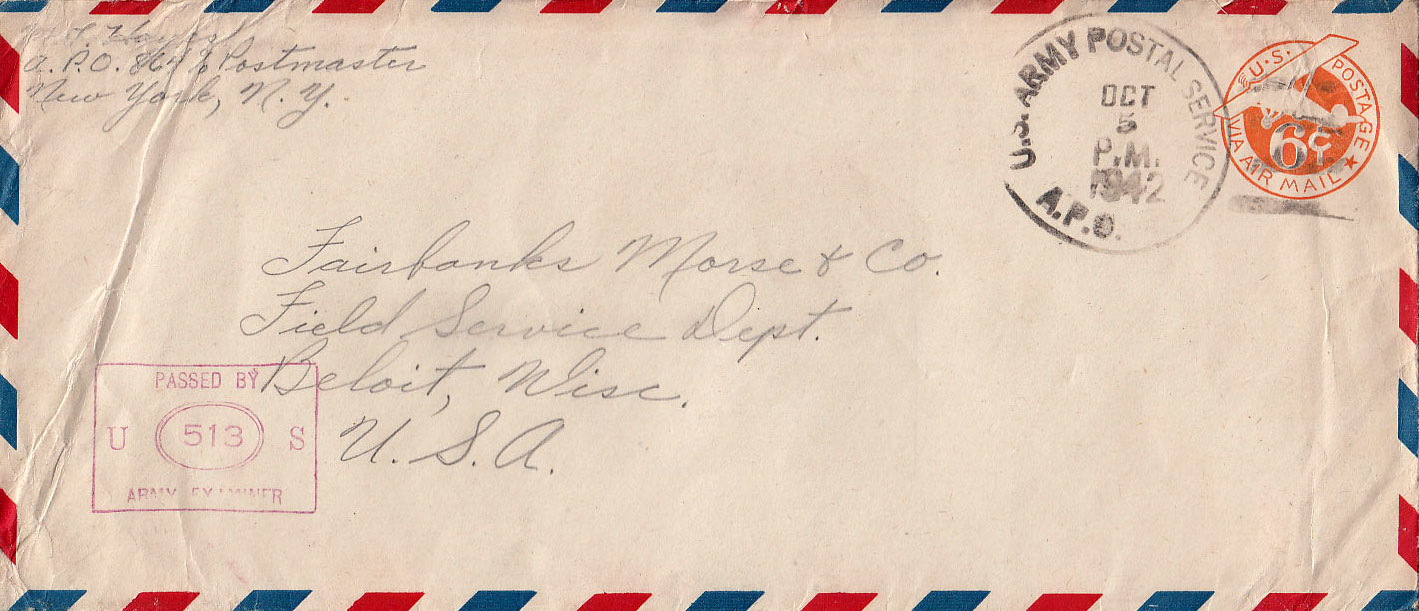 a. P.O. Postmaster
New York, N.Y.
U.S. ARMY POSTAL SERVICE
OCT
5
P.M.
1942
A.P.O.
U.S. POSTAGE
6¢
VIA AIR MAIL
Fairbanks Morse & Co.
Field Service Dept.
Beloit, Wisc.
U.S.A.
PASSED BY
U 513 S
ARMY EXAMINER